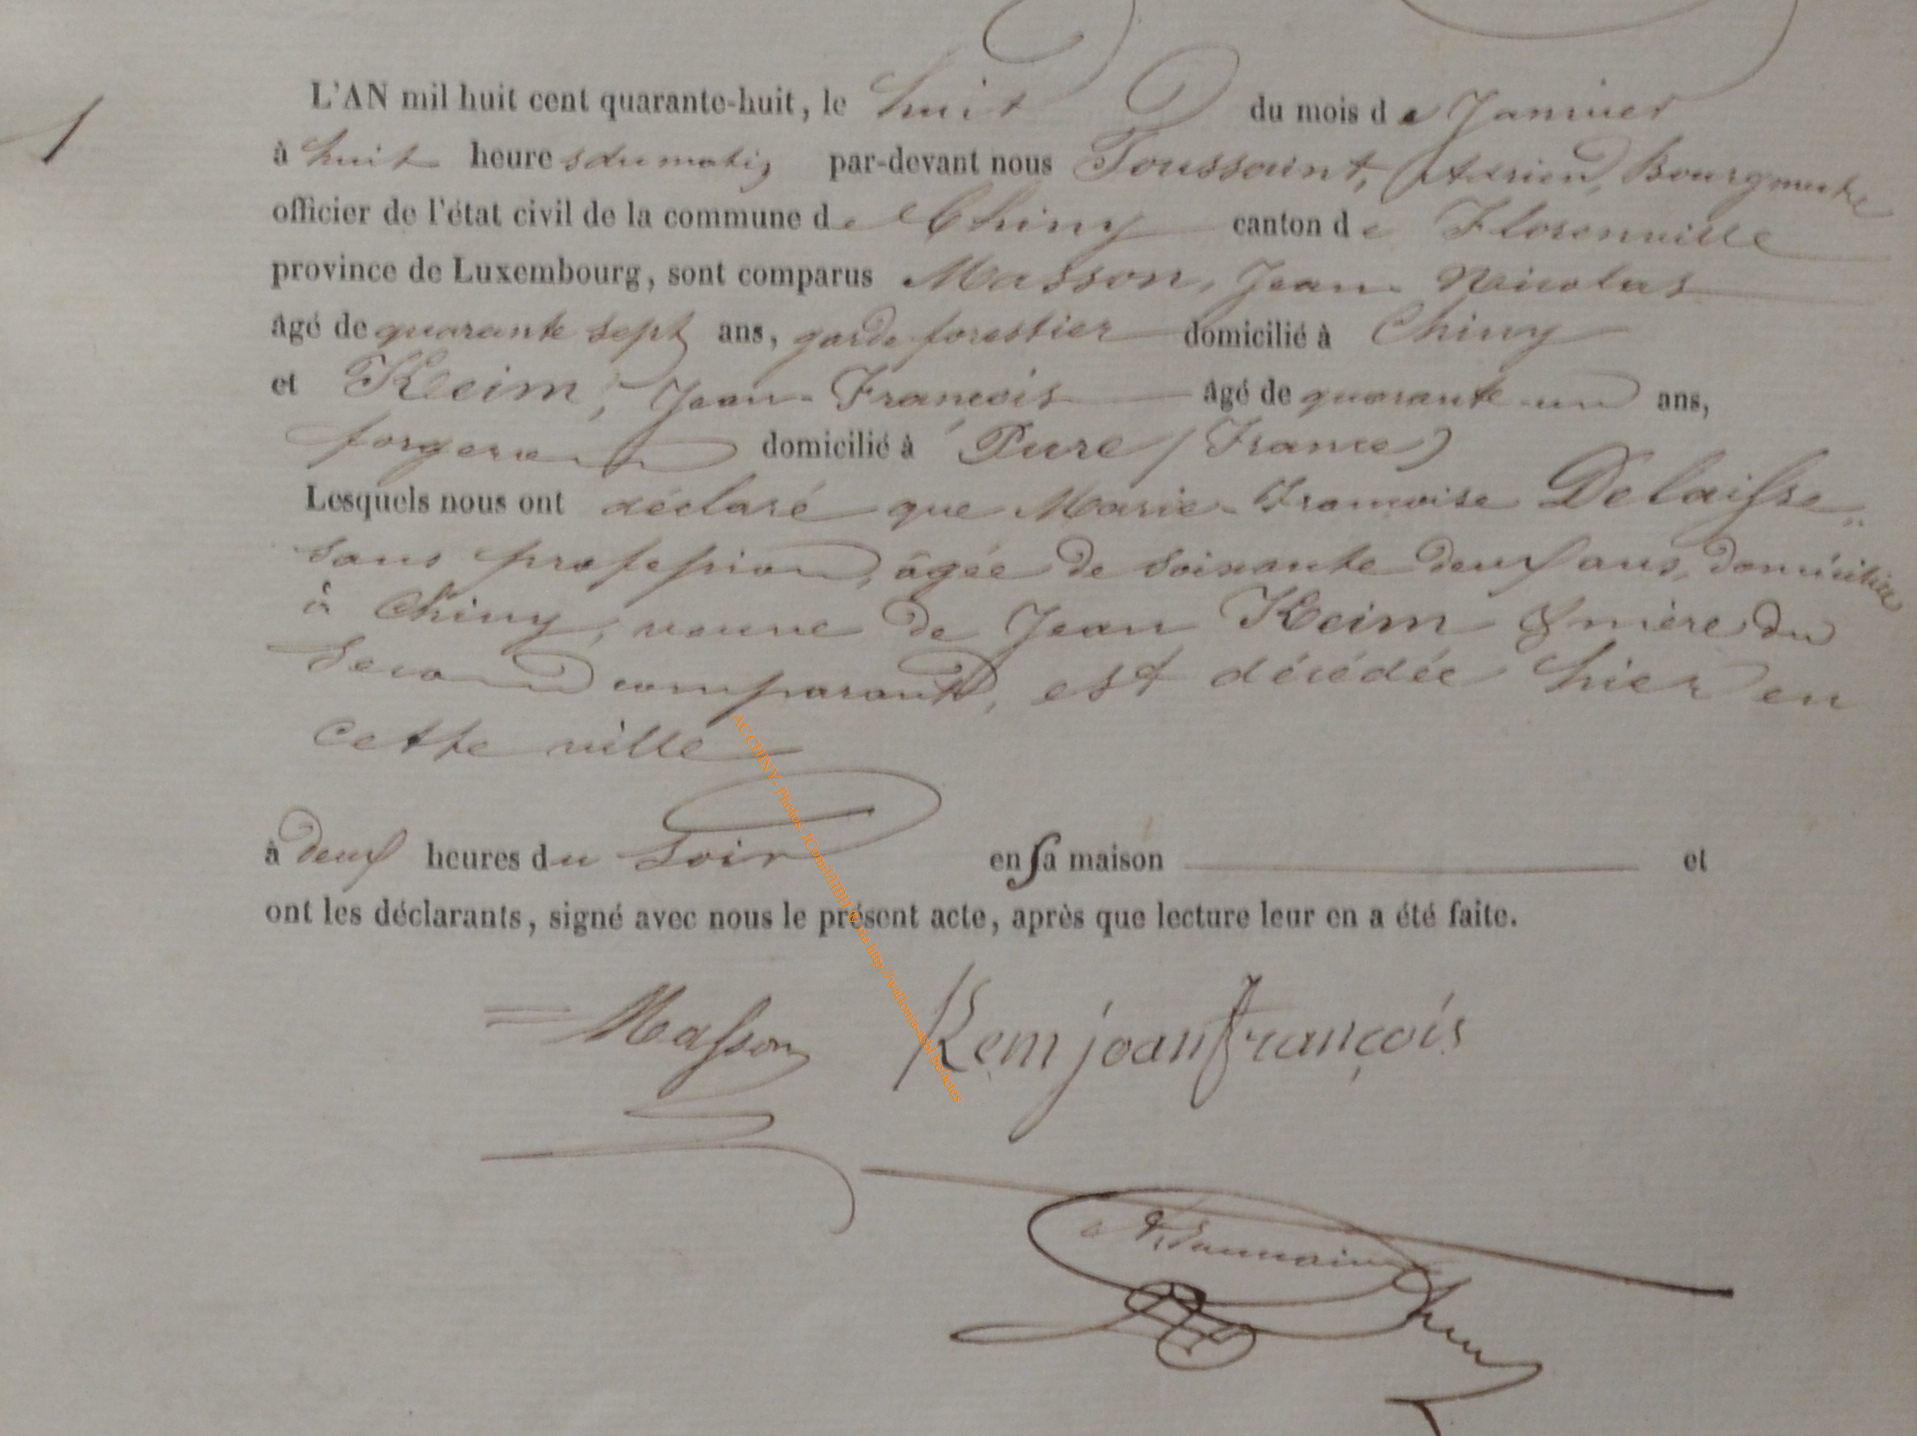 1
L'AN mil huit cent quarante-huit, le huit du mois de Janvier
à huit heures du matin par-devant nous Toussaint, Adrien, Bourgmestre
officier de l'état civil de la commune de Chiny canton de Florenville
province de Luxembourg, sont comparus Masson, Jean-Nicolas
âgé de quarante sept ans, garde forestier domicilié à Chiny
et Keim, Jean-François âgé de quarante-un ans,
forgeron domicilié à Pure (France)
Lesquels nous ont déclaré que Marie-Françoise Delaisse,
sans profession, âgée de soixante deux ans, domiciliée
à Chiny, veuve de Jean Keim & mère du
second comparant, est décédée hier en
cette ville
à deux heures du soir en sa maison et
ont les déclarants, signé avec nous le présent acte, après que lecture leur en a été faite.
Masson Kem jean françois